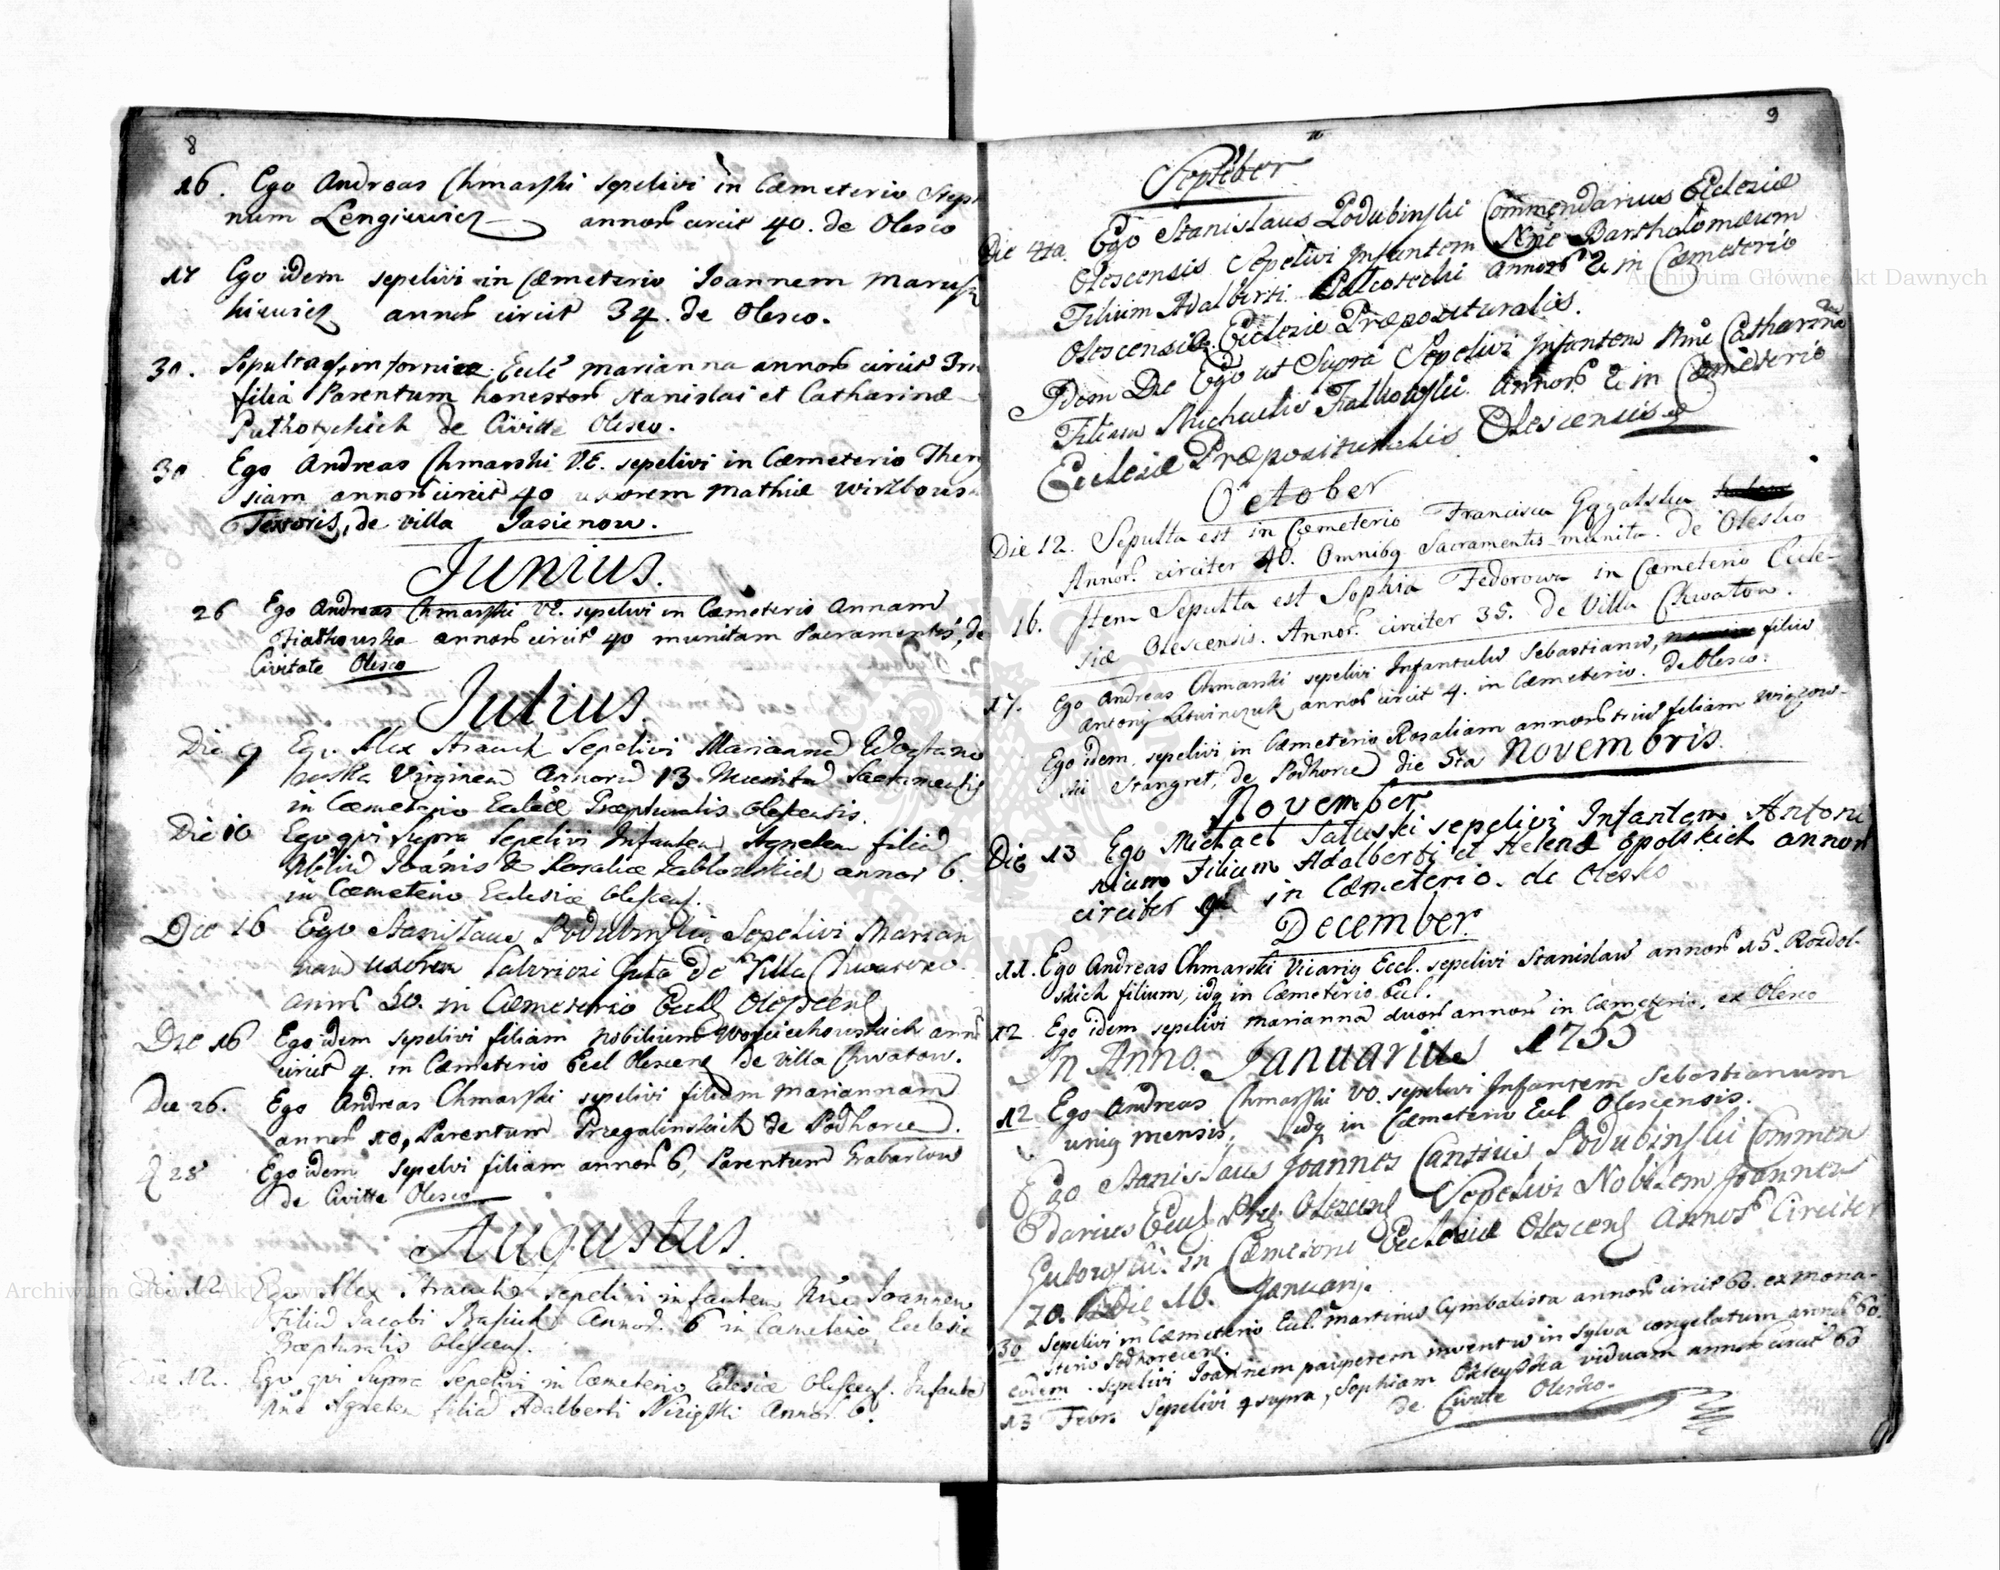 8
16. Ego Andreas Chmarski sepelivi in Cæmeterio Steph
num Lengiewicz annor circit 40. de Olesco
17 Ego idem sepelivi in Cæmeterio Joannem Marusz
kiewicz annor circit 34. de Olesco.
30. Sepulta est in fornice Eccle Marianna annor circit
filia Parentum honestor Stanislai et Catharinæ
de Civitte Olesco.
30 Ego Andreas Chmarski V.E. sepelivi in Cæmeterio There
siam annor circit 40 uxorem Mathiæ
Textoris, de villa Jasienow.
Junius.
26 Ego Andreas Chmarski VE. sepelivi in Cæmeterio Annam
Fiałkowska annor circit 40 munitam Sacramentis, de
Civitate Olesco
Julius.
Die 9 Ego Alex Strauch Sepelivi Mariannā
Virginem Annorū 13 Munitā Sacramentis
in Cæmeterio Eccleæ Præpturalis Olescensis.
Die 10 Ego qui supra Sepelivi Infantem Agnetem filiā
Nobiliū Joānis & Rosaliæ Jabłonskich annor 6.
in Cæmeterio Ecclesiæ Olescens.
Die 16 Ego Stanislaus Podubinski Sepelivi Marian
nam uxorem de Villa Chwatow.
annor 50. in Cæmeterio Eccl Olescens
Die 16 Ego idem sepelivi filiam Nobilium Woyciechowskich ann
circit 4. in Cæmeterio Eccl Olescens de villa Chwatow.
Die 26. Ego Andreas Chmarski sepelivi filiam Mariannam
annor 10, Parentum Przegalinskich de Podhorce.
28 Ego idem sepelivi filiam annor 6, Parentum Grabarzow
de Civitte Olesco
Augustus.
Die 12 Ego Alex Strauch sepelivi infantem Nne Joannem
Filiū Jacobi Annor. 6 in Cæmeterio Ecclesiæ
Præpturalis Olescens.
Die 12. Ego qui supra Sepelivi in Cæmeterio Eclesiæ Olescens. Infante
Nne Agnetem filiā Adalberti Annor. 6.
9
Septēber
Die 4ta. Ego Stanislaus Podubinski Commendarius Ecclesiæ
Olescensis Sepelivi Infantem Nne Bartholomæum
Filium Adalberti annor 2 in Cæmeterio
Olescensis Ecclesiæ Præposituralis.
Idem Die Ego ut Supra Sepelivi Infantem Nne Catharina
Filiam Michaelis Fiałkowski annor 2 in Cæmeterio
Ecclesiæ Præposituralis Olescensis
October
Die 12. Sepulta est in Cæmeterio Francisca
Annor. circiter 40. Omnibq Sacramentis munita. de Olesko
16. Item Sepulta est Sophia Fedorowa in Cæmeterio Eccle-
siæ Olescensis. Annor. circiter 35. de Villa Chwatow.
17. Ego Andreas Chmarski sepelivi Infantulū Sebastianū, filiū
Antonij Litwinczuk, annor circit 4. in Cæmeterio. de Olesco.
Ego idem, sepelivi in Cæmeterio Rosaliam annor triū filiam
Stangret, de Podhorce die 5ta Novembris.
November
Die 13 Ego Michael Sałuski sepelivi Infantem Antoni
nium Filium Adalberti et Helenæ Opolskich annor
circiter in Cæmeterio. de Olesko
December.
11. Ego Andreas Chmarski Vicariq Eccl. sepelivi Stanislaū annor 15. Rozdol-
skich filium, idq in Cæmeterio Eccl.
12 Ego idem sepelivi Mariannā duor annor in Cæmeterio, ex Olesco
In Anno. Januarius 1755
12 Ego Andreas Chmarski VO. sepelivi Infantem Sebastianum
uniq mensis, idq in Cæmeterio Eccl Olescensis.
Ego Stanislaus Joannes Cantius Podubinski Commen
darius Eccl Præ Olescens Sepelivi Nobilem Joannem
Gutowski. in Cæmeterio Ecclesiæ Olescens Annor Circiter
70. Die 16. Januarij.
30 Sepelivi in Cæmeterio Eccl. Martinū Cymbalista annor circit 60. ex Mona-
sterio Podhorecens.
eodem. sepelivi Joannem pauperem inventū in sylva congelatum annor 60.
13 Febr. Sepelivi q supra, Sophiam viduam annor circit 60
de Civitte Olesko.
Archiwum Główne Akt Dawnych
Archiwum Główne Akt Dawnych